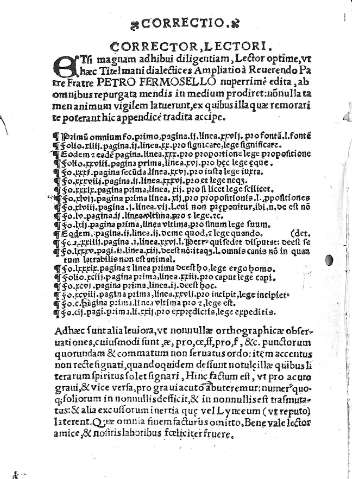 CORRECTIO.
CORRECTOR, LECTORI.
ETsi magnam adhibui diligentiam, Lector optime, vt
hæc Titelmani dialectices Ampliatio à Reuerendo Pa
tre Fratre PETRO FERMOSELLO nuperrime edita, ab
omnibus repurgata mendis in medium prodiret: nõnulla ta
men animum vigilem latuerunt, ex quibus illa quæ remorari
te poterant hic appendice tradita accipe.
¶ Primũ omnium fo. primo, pagina. ij. linea. xvij. pro fontẽ. l. fontẽ
¶ Folio. xiij. pagina. ij. linea. xx. pro significare, lege significare.
¶ Eodem pagina. linea. xxx. pro proportione lege propositione
¶ Folio. xxvj. pagina prima, linea. xvj. pro hęc lege
¶ Fo. xxxj. pagina secũda, linea. xxvj. pro iusta lege iuxta.
¶ Fo. xxxviij. pagina. ij. linea. pro et lege
¶ Fo. xxxix. pagina prima, linea. xij. pro si licet lege scilicet.
¶ Fo. xlvj. pagina prima, linea. xij. pro propositionis. l. ppositiones
¶ Fo. lv. pagina. ij. linea vltima, pro z lege. tc.
¶ Fo. lxij. pagina prima, linea vltima pro sinum lege suum.
¶ Eodem, pagina. ij. linea. ij. bene quod, z lege quando. (det.
tum latrabilis non est animal.
¶ Fo. lxxxix. pagina prima deest ho, lege ergo homo.
¶ Folio. xcij. pagina prima, linea. xxv. pro caput lege capi.
¶ Fo. xvj. pagina prima, linea. ij. deest hoc.
¶ Fo. xcviij. pagina prima, linea. pro incipit, lege incipiet
¶ Fo. c. pagina prima, linea vltima pro z, lege est.
¶ Fo. cij. pag. prima. li. xxij. pro expręditis, lege expeditis.
Adhæc sunt alia leuiora, vt nonnullæ orthographicæ obser
uationes, cuiusmodi sunt æ, pro, œ, ff, pro, f, &c. punctorum
quorundam & commatum non seruatus ordo: item accentus
non recte signati, quandoquidem desunt notulæ illæ quibus li
terarum spiritus solet signari, Hinc factum est, vt pro acuto
graui, & vice versa, pro graui acuto abuteremur: numerꝰ quo-
q; foliorum in nonnullis defficit, & in nonnullis est trasmuta-
tus: & alia excussorum inertia quę vel Lynceum (vt reputo)
laterent. Quæ omnia finem facturus omitto, Bene vale lector
amice, & nostris laboribus fœliciter fruere.